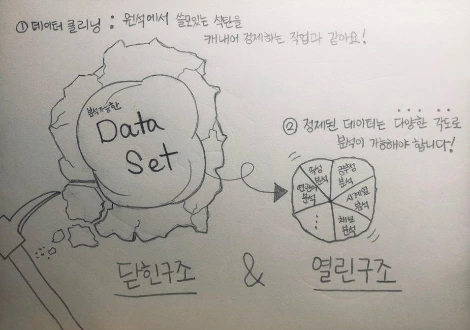 ① 데이터 클리닝 : 원석에서 쓸모있는 석탄을
캐내어 정제하는 작업과 같아요!
분석가능한
Data
Set
② 정제된 데이터는 다양한 각도로
분석이 가능해야 합니다!
감성
분석
분석
연관어
분석
시계열
분석
⋮
채널
분석
닫힌구조 & 열린구조